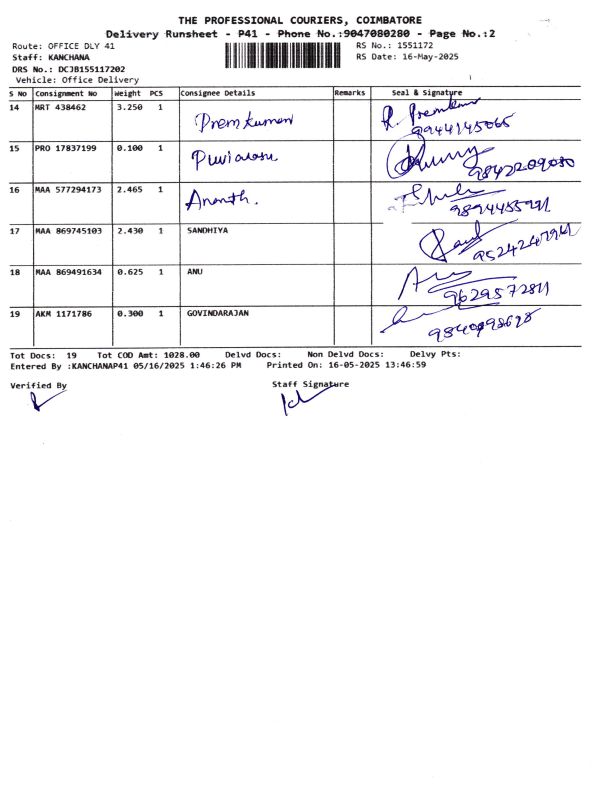 THE PROFESSIONAL COURIERS, COIMBATORE
Delivery Runsheet - P41 - Phone No.:9047080280 - Page No.:2
Route: OFFICE DLY 41
RS No.: 1551172
Staff: KANCHANA
RS Date: 16-May-2025
DRS No.: DCJB155117202
Vehicle: Office Delivery
S No Consignment No Weight PCS Consignee Details Remarks Seal & Signature
14 MRT 438462 3.250 1 Premkumar R. Premkumar
9944145065
15 PRO 17837199 0.100 1 Puviarasu
9842209080
16 MAA 577294173 2.465 1 Ananth.
9894455991
17 MAA 869745103 2.430 1 SANDHIYA
9524247961
18 MAA 869491634 0.625 1 ANU
9629572811
19 AKM 1171786 0.300 1 GOVINDARAJAN
Tot Docs: 19 Tot COD Amt: 1028.00 Delvd Docs: Non Delvd Docs: Delvy Pts:
Entered By :KANCHANAP41 05/16/2025 1:46:26 PM Printed On: 16-05-2025 13:46:59
Verified By Staff Signature